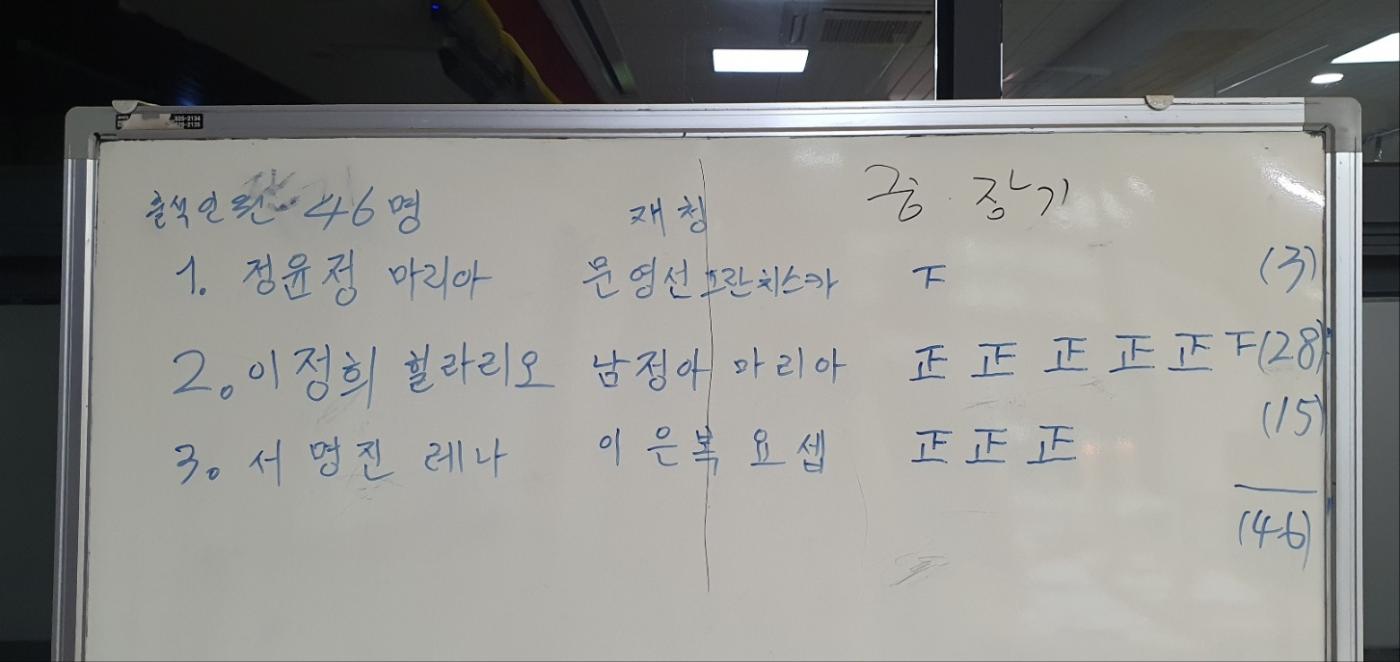 출석인원 46명 재청 중 장기
1. 정윤정 마리아 문영선 프란치스카 下 (3)
2. 이정희 힐라리오 남정아 마리아 正 正 正 正 正 下 (28)
3. 서명진 레나 이은복 요셉 正 正 正 (15)
(46)